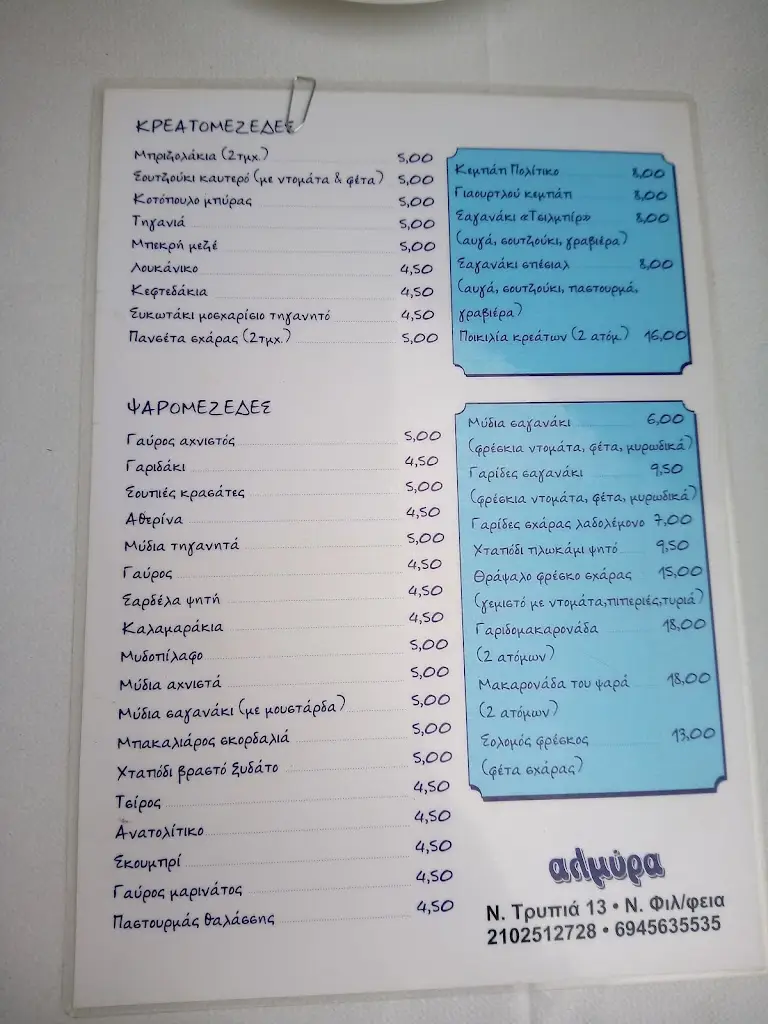 ΚΡΕΑΤΟΜΕΖΕΔΕΣ
Μπριζολάκια (2τμχ.) 5,00
Σουτζούκι καυτερό (με ντομάτα & φέτα) 5,00
Κοτόπουλο μπύρας 5,00
Τηγανιά 5,00
Μπεκρή μεζέ 5,00
Λουκάνικο 4,50
Κεφτεδάκια 4,50
Συκωτάκι μοσχαρίσιο τηγανητό 4,50
Πανσέτα σχάρας (2τμχ.) 5,00
Κεμπάπ Πολίτικο 8,00
Γιαουρτλού κεμπάπ 8,00
Σαγανάκι «Τσιλμπίρ» 8,00
(αυγά, σουτζούκι, γραβιέρα)
Σαγανάκι σπέσιαλ 8,00
(αυγά, σουτζούκι, παστουρμά,
γραβιέρα)
Ποικιλία κρεάτων (2 ατόμ.) 16,00
ΨΑΡΟΜΕΖΕΔΕΣ
Γαύρος αχνιστός 5,00
Γαριδάκι 4,50
Σουπιές κρασάτες 5,00
Αθερίνα 4,50
Μύδια τηγανητά 5,00
Γαύρος 4,50
Σαρδέλα ψητή 4,50
Καλαμαράκια 4,50
Μυδοπίλαφο 5,00
Μύδια αχνιστά 5,00
Μύδια σαγανάκι (με μουστάρδα) 5,00
Μπακαλιάρος σκορδαλιά 5,00
Χταπόδι βραστό ξυδάτο 5,00
Τσίρος 4,50
Ανατολίτικο 4,50
Σκουμπρί 4,50
Γαύρος μαρινάτος 4,50
Παστουρμάς θαλάσσης 4,50
Μύδια σαγανάκι 6,00
(φρέσκια ντομάτα, φέτα, μυρωδικά)
Γαρίδες σαγανάκι 9,50
(φρέσκια ντομάτα, φέτα, μυρωδικά)
Γαρίδες σχάρας λαδολέμονο 7,00
Χταπόδι πλωκάμι ψητό 9,50
Θράψαλο φρέσκο σχάρας 15,00
(γεμιστό με ντομάτα,πιπεριές,τυριά)
Γαριδομακαρονάδα 18,00
(2 ατόμων)
Μακαρονάδα του ψαρά 18,00
(2 ατόμων)
Σολομός φρέσκος 13,00
(φέτα σχάρας)
αλμύρα
Ν. Τρυπιά 13 • Ν. Φιλ/φεια
2102512728 • 6945635535